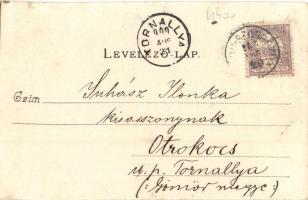 TORNALLYA
909
AUG
LEVELEZŐ-LAP.
Czim
Juhász Ilonka
kisasszonynak
Otrokocs
u. p. Tornallya
(: Gömör megye :)